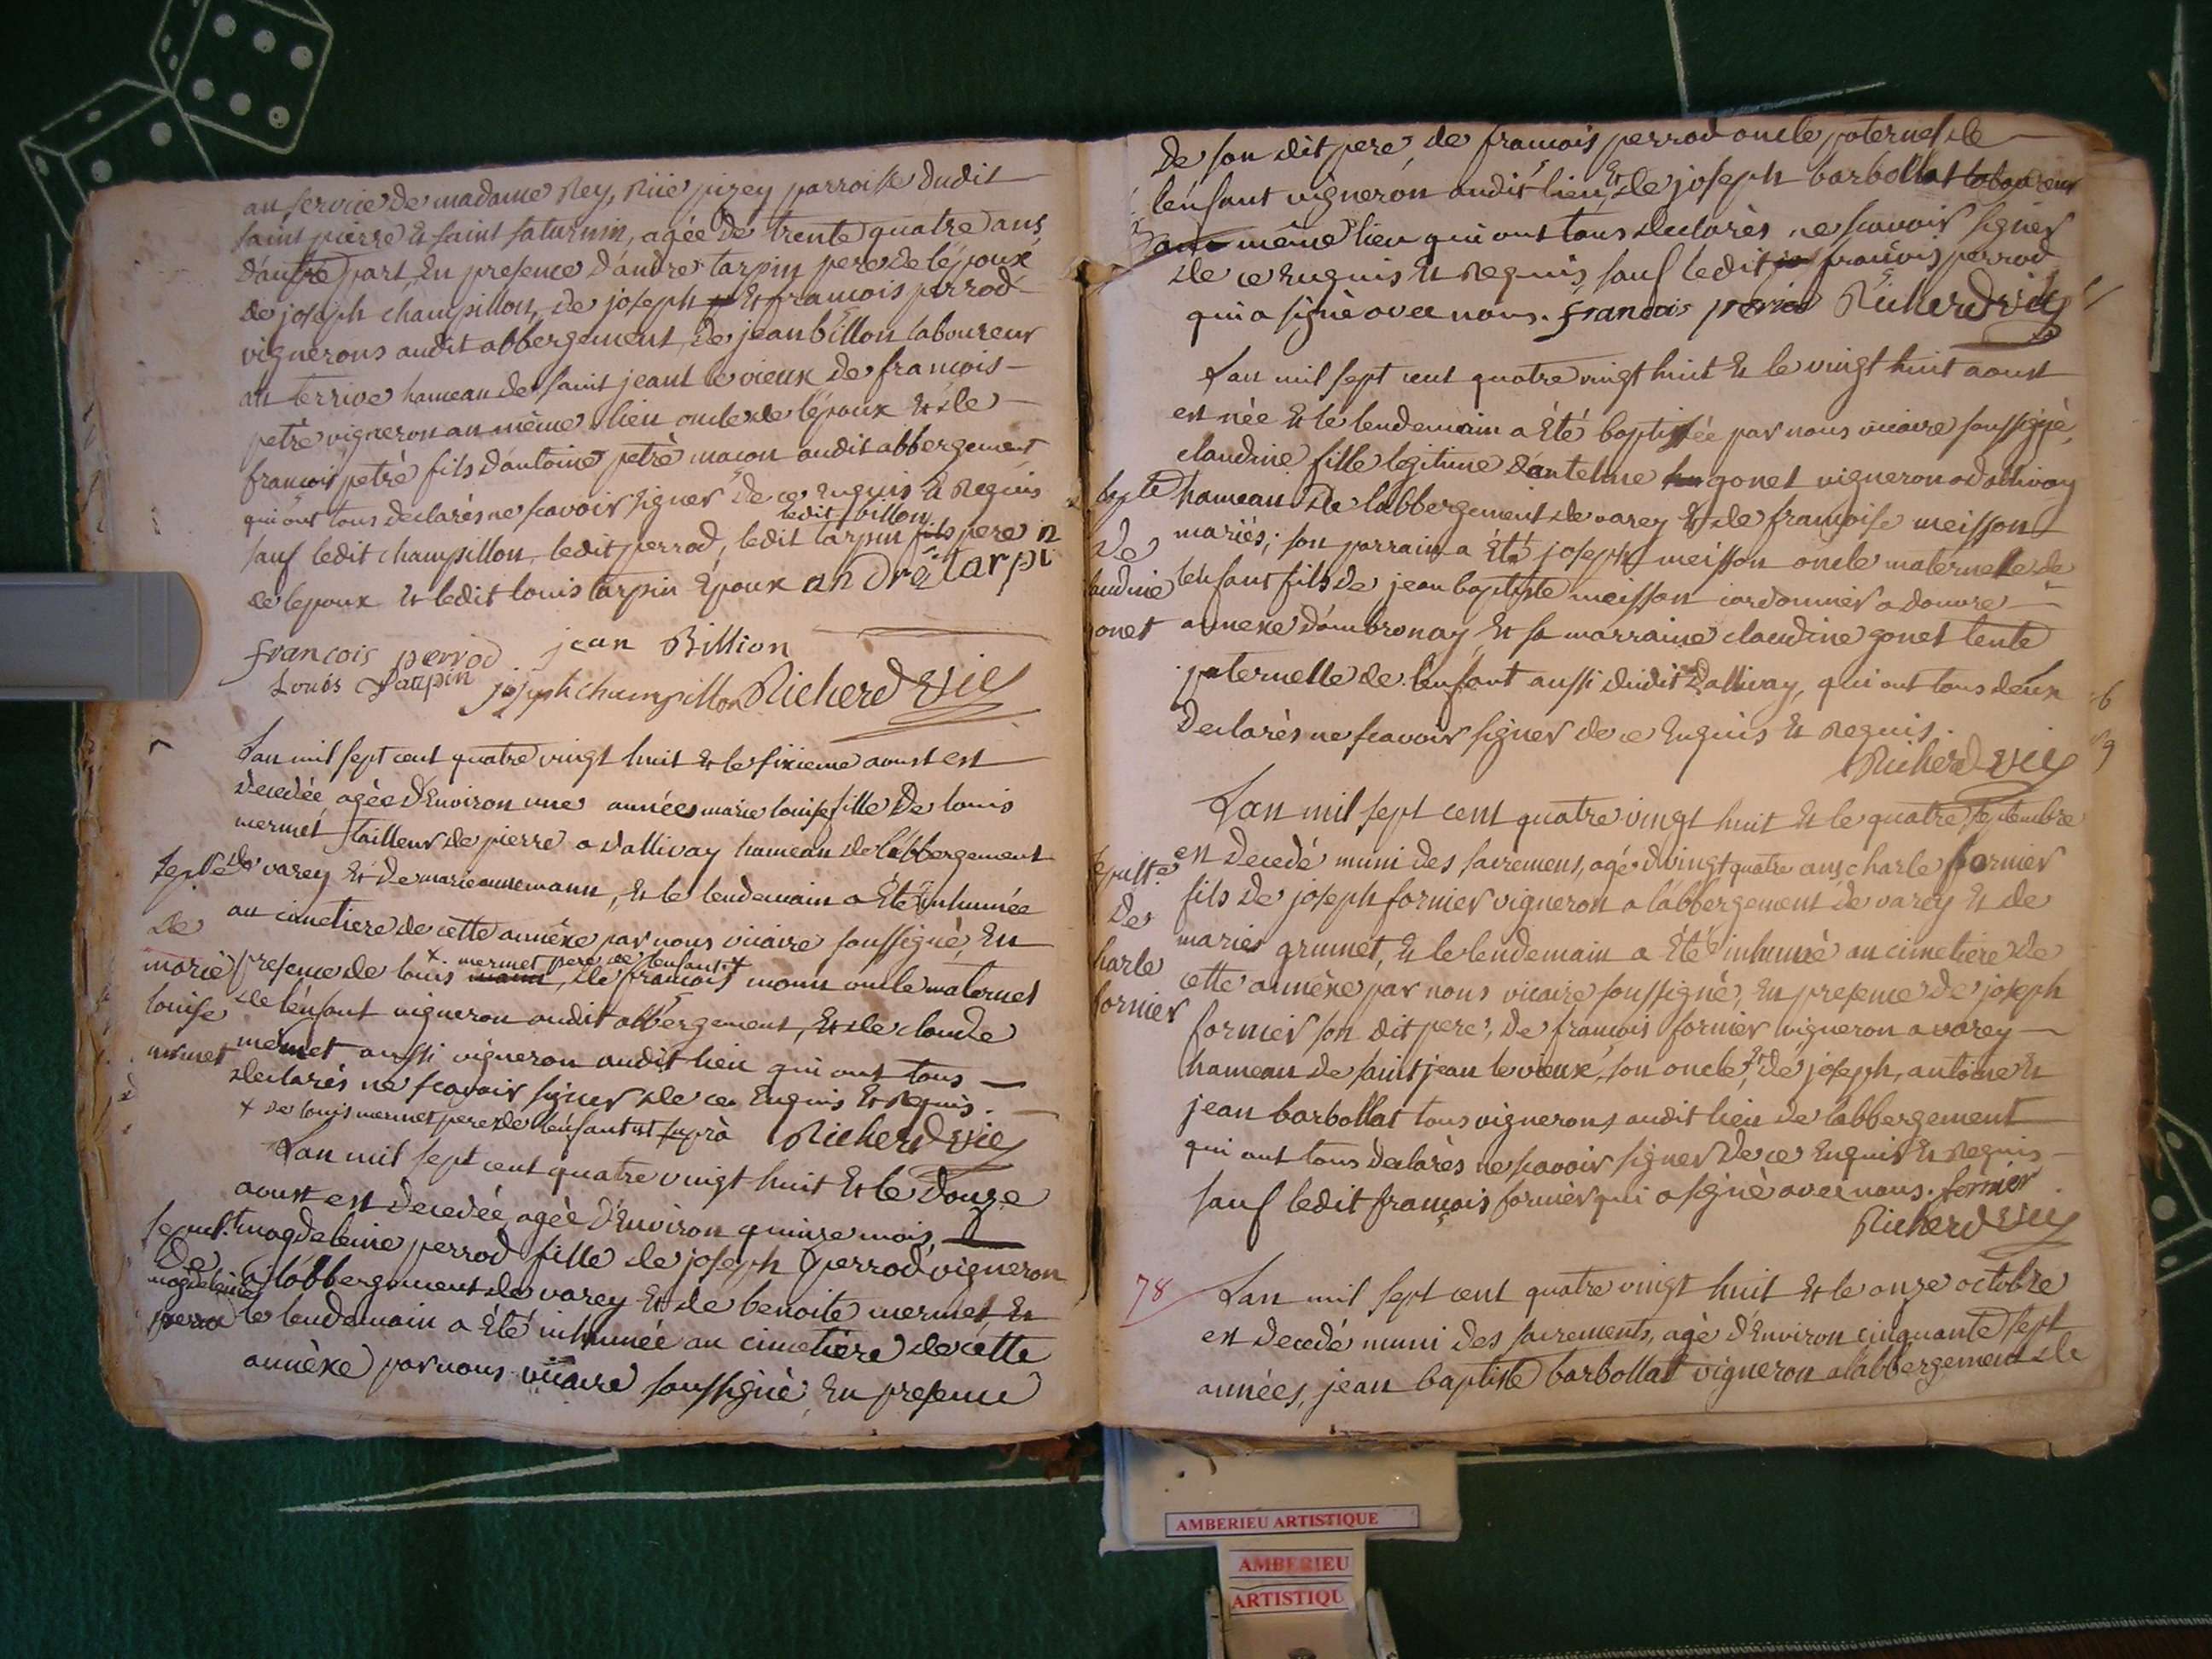 au service de madame Rey, Rüe pizey parroisse dudit
saint pierre et saint saturnin, agée de trente quatre ans,
d'autre part, En presence d'andre tarpin pere de lépoux
de joseph champillon, de joseph et francois perrod
vignerons audit abbergement, de jean billon laboureur
au terrive hameau de saint jeant le vieux de francois
petrè vigneron au même lieu oncle de lépoux et de
francois petrè fils d'antoine petrè macon audit abbergement
qui ont tous declarès ne scavoir signer de ce Enquis et Requis
ledit billon
sauf ledit champillon, ledit perrod, ledit tarpin fils pere
de lepoux et ledit louis tarpin Epoux andre tarpin
francois perrod jean Billion
Louis Tarpin joseph champillon Richerd Vic
Lan mil sept cent quatre vingt huit et le sixieme aoust est
decedée, agée d'Environ une années marie louise fille de louis
mermet tailleur de pierre a dallivay hameau de labbergement
de varey et de marie anne mann, et le lendemain a Eté inhumée
au cimetiere de cette annèxe par nous vicaire soussigné, En
x mermet pere de lenfant x
presence de louis mann, de francois monn oncle maternel
de lénfant vigneron audit abbergement, et de claude
mermet aussi vigneron audit lieu qui ont tous
declarés ne scavoir signer de ce Enquis et Requis.
x de louis mermet pere de lénfant ut suprà Richerd Vic
Sepult.
de
marie
louise
mermet
Lan mil sept cent quatre vingt huit et le Douze
aoust est decedée, agée d'Environ quinze mois,
magdeleine perrod fille de joseph perrod vigneron
a labbergement de varey et de benoite mermet, et
le lendemain a Eté inhumée au cimetière de cette
annèxe par nous vicaire soussigné, En presence
Sepult.
De
magdeleine
perrod
De son dit pere, de francois perrod oncle paternel de
lénfant vigneron audit lieu, et de joseph barbollat laboureur
au même lieu qui ont tous declarés ne scavoir signer
de ce Enquis et Requis, sauf ledit francois perrod
qui a signè avec nous. francois perrod Richerd Vic
Lan mil sept cent quatre vingt huit et le vingt huit aoust
est née et le lendemain a Eté baptissée par nous vicaire soussigné,
claudine fille legitime d'antelme gonet vigneron a dallivay
hameau de labbergement de varey et de francoise meisson
mariés; son parrain a Eté joseph meisson oncle maternelle de
lenfant fils de jean baptiste meisson cordonnier a douvre
annexe d'ambronay, et sa marraine claudine gonet tente
paternelle de lenfant aussi dudit dallivay, qui ont tous deux
declarès ne scavoir signer de ce Enquis et Requis.
Richerd Vic
bapte
de
laudine
onet
Lan mil sept cent quatre vingt huit et le quatre septembre
est decedé muni des sacremens, agé d vingt quatre ans charle fornier
fils de joseph fornier vigneron a labbergement de varey et de
marie grumet, et le lendemain a Eté inhumé au cimetiere de
cette annèxe par nous vicaire soussigné, En presence de joseph
fornier son dit pere, de francois fornier vigneron a varey
hameau de saint jean le vieux, son oncle, et de joseph, antoine et
jean barbollat tous vignerons audit lieu de labbergement
qui ont tous declarès ne scavoir signer de ce Enquis et Requis
sauf ledit francois fornier qui a signè avec nous. fornier
Richerd Vic
sepult.
de
harle
fornier
78
Lan mil sept cent quatre vingt huit et le onze octobre
est decedé muni des sacrements, agé d'Environ cinquante sept
années, jean baptiste barbollat vigneron a labbergement de
AMBERIEU ARTISTIQUE
AMBERIEU
ARTISTIQU